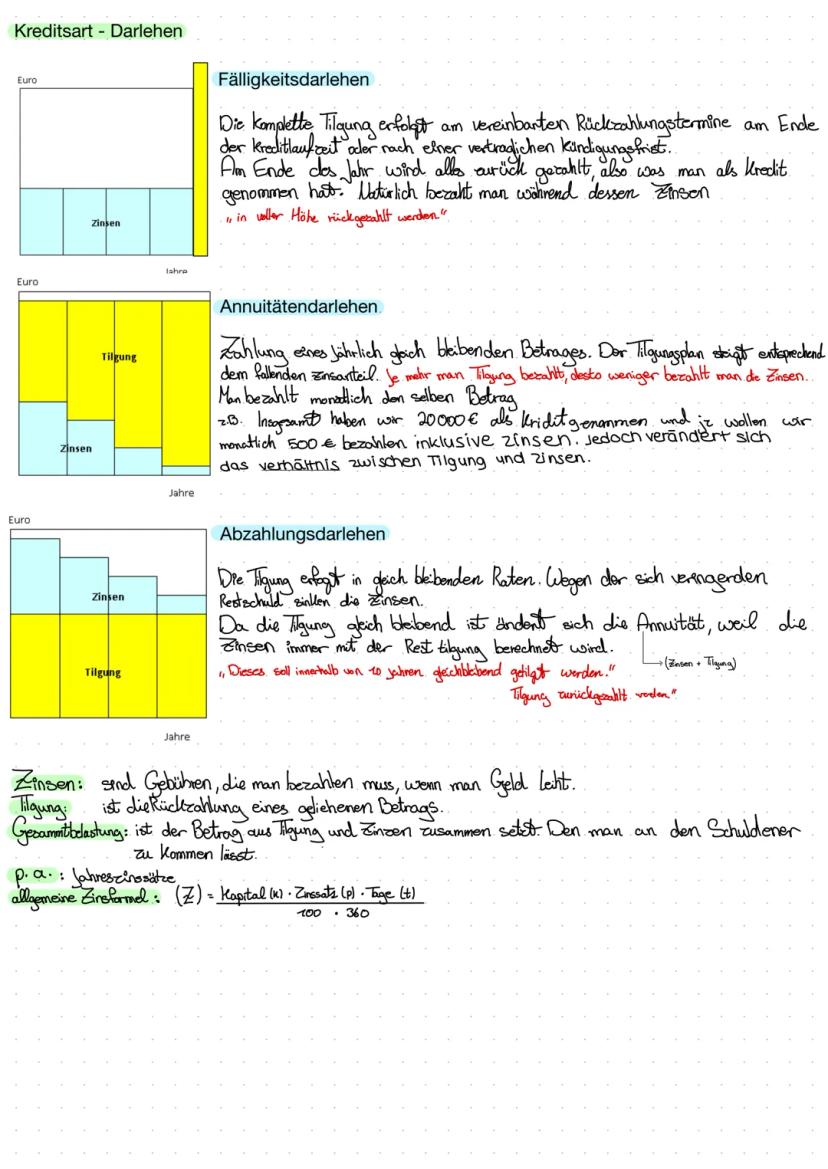 Kreditsart - Darlehen
Euro
Zinsen
Jahre
Fälligkeitsdarlehen
Die komplette Tilgung erfolgt am vereinbarten Rückzahlungstermine am Ende
der Kreditlaufzeit oder nach einer vertraglichen Kündigungsfrist.
Am Ende des Jahr wird alles zurück gezahlt, also was man als Kredit
genommen hat. Natürlich bezahlt man während dessen Zinsen
„in voller Höhe rückgezahlt werden"
Euro
Tilgung
Zinsen
Jahre
Annuitätendarlehen
Zahlung eines jährlich gleich bleibenden Betrages. Der Tilgungsplan steigt entsprechend
dem fallenden Zinsanteil. Je mehr man Tilgung bezahlt, desto weniger bezahlt man die Zinsen..
Man bezahlt monatlich den selben Betrag
z.B. Insgesamt haben wir 20000€ als Kridit genommen und jz wollen wir
monatlich 500€ bezahlen inklusive Zinsen. Jedoch verändert sich
das verhältnis zwischen Tilgung und Zinsen.
Euro
Zinsen
Tilgung
Jahre
Abzahlungsdarlehen
Die Tilgung erfogt in gleich bleibenden Raten. Wegen der sich veringerden
Restschuld sinken die Zinsen.
Da die Tilgung gleich bleibend ist ändert sich die Annuität, weil die
Zinsen immer mit der Rest tilgung berechnet wird.
(Zinsen + Tilgung)
„Dieses soll innerhalb von 10 Jahren gleichbleibend getilgt werden."
Tilgung zurückgezahlt werden"
Zinsen: sind Gebühren, die man bezahlen muss, wenn man Geld leiht.
Tilgung: ist die Rückzahlung eines geliehenen Betrags.
Gesammtbelastung: ist der Betrag aus Tilgung und Zinzen zusammen setzt. Den man an den Schuldener
zu kommen lässt.
p.a.: Jahreszinssätze
allgemeine Zinsformel: (Z) = Kapital (K) · Zinssatz (p) · Tage (t)
100 · 360